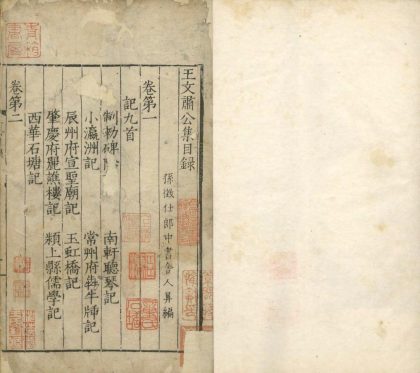 王文肅公集目錄
孫徵仕郎中書舍人昇編
卷第一
記九首
制勅碑 南軒聽琴記
小瀛洲記 常州府犇牛牐記
辰州府宣聖廟記 玉虹橋記
肇慶府麗譙樓記 潁上縣儒學記
西華石塘記
卷第二